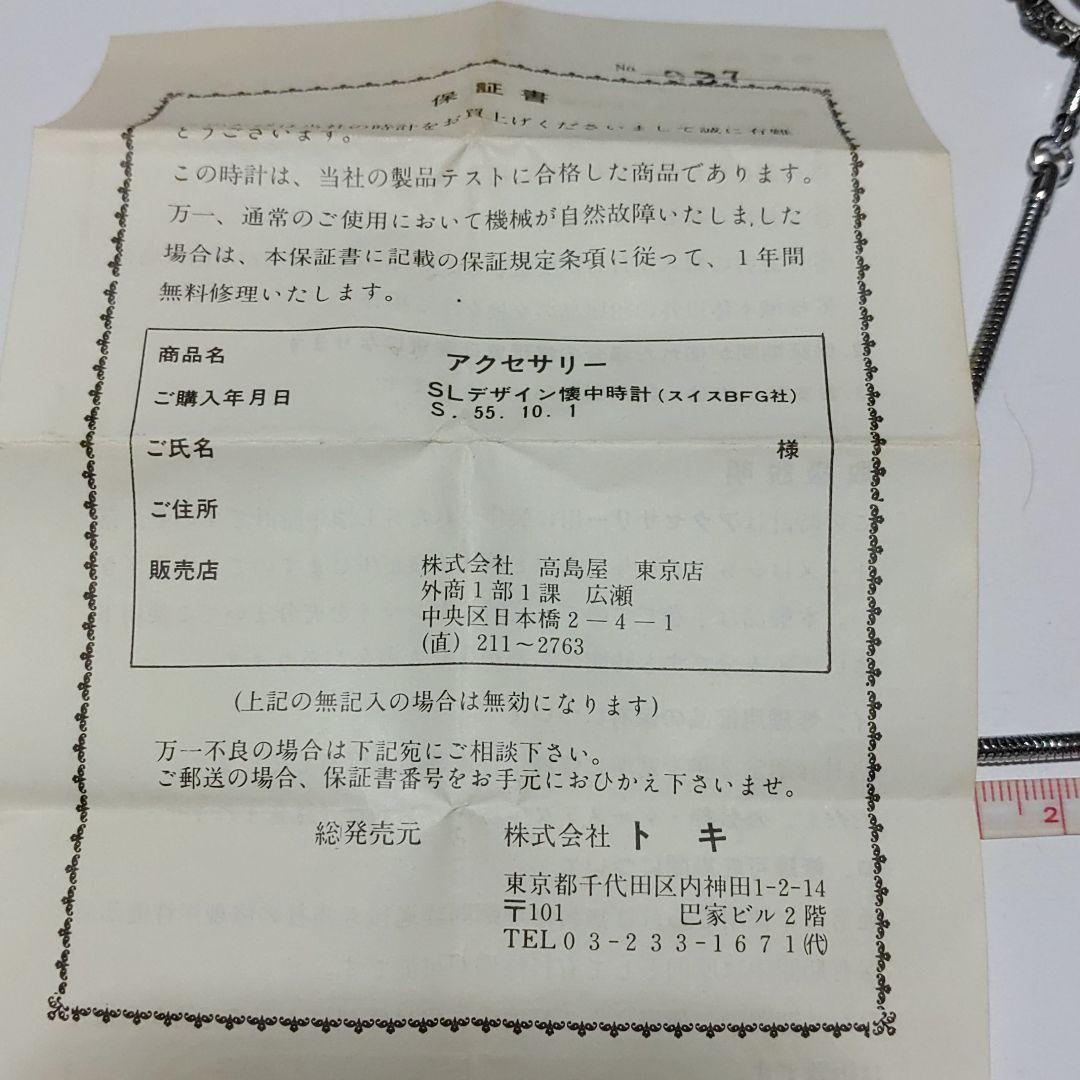 No. 237
保証書
の時計をお買上げくださいまして誠に有難
とうございます。
この時計は、当社の製品テストに合格した商品であります。
万一、通常のご使用において機械が自然故障いたしました
場合は、本保証書に記載の保証規定条項に従って、1年間
無料修理いたします。
商品名 アクセサリー
SLデザイン懐中時計(スイスBFG社)
ご購入年月日 S. 55. 10. 1
ご氏名 様
ご住所
販売店 株式会社 高島屋 東京店
外商1部1課 広瀬
中央区日本橋2-4-1
(直) 211~2763
(上記の無記入の場合は無効になります)
万一不良の場合は下記宛にご相談下さい。
ご郵送の場合、保証書番号をお手元におひかえ下さいませ。
総発売元 株式会社 トキ
東京都千代田区内神田1-2-14
〒101 巴家ビル2階
TEL03-233-1671(代)
2